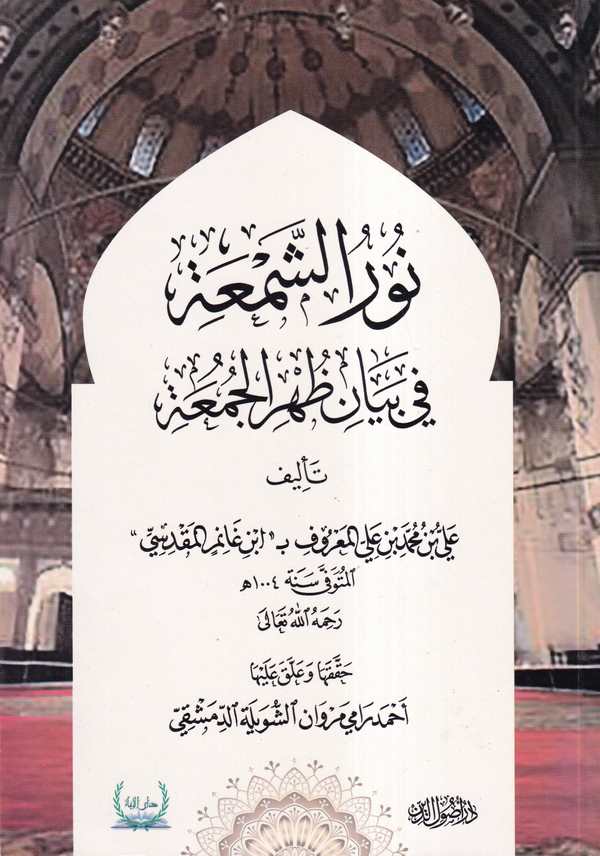 نُورُ الشَّمْعَةِ
فِي بَيَانِ ظُهْرِ الْجُمُعَةِ
تأليف
عَلِيُّ بْنُ مُحَمَّدِ بْنِ عَلِيٍّ الْمَعْرُوفِ بـ "ابْنِ غَانِمٍ الْمَقْدِسِيِّ"
المُتَوَفَّى سَنَة ١٠٠٤هـ
رَحِمَهُ اللهُ تَعَالَى
حَقَّقَهَا وَعَلَّقَ عَلَيْهَا
أحمد رامي مروان الشويلة الدمشقي
دار أصول الدين